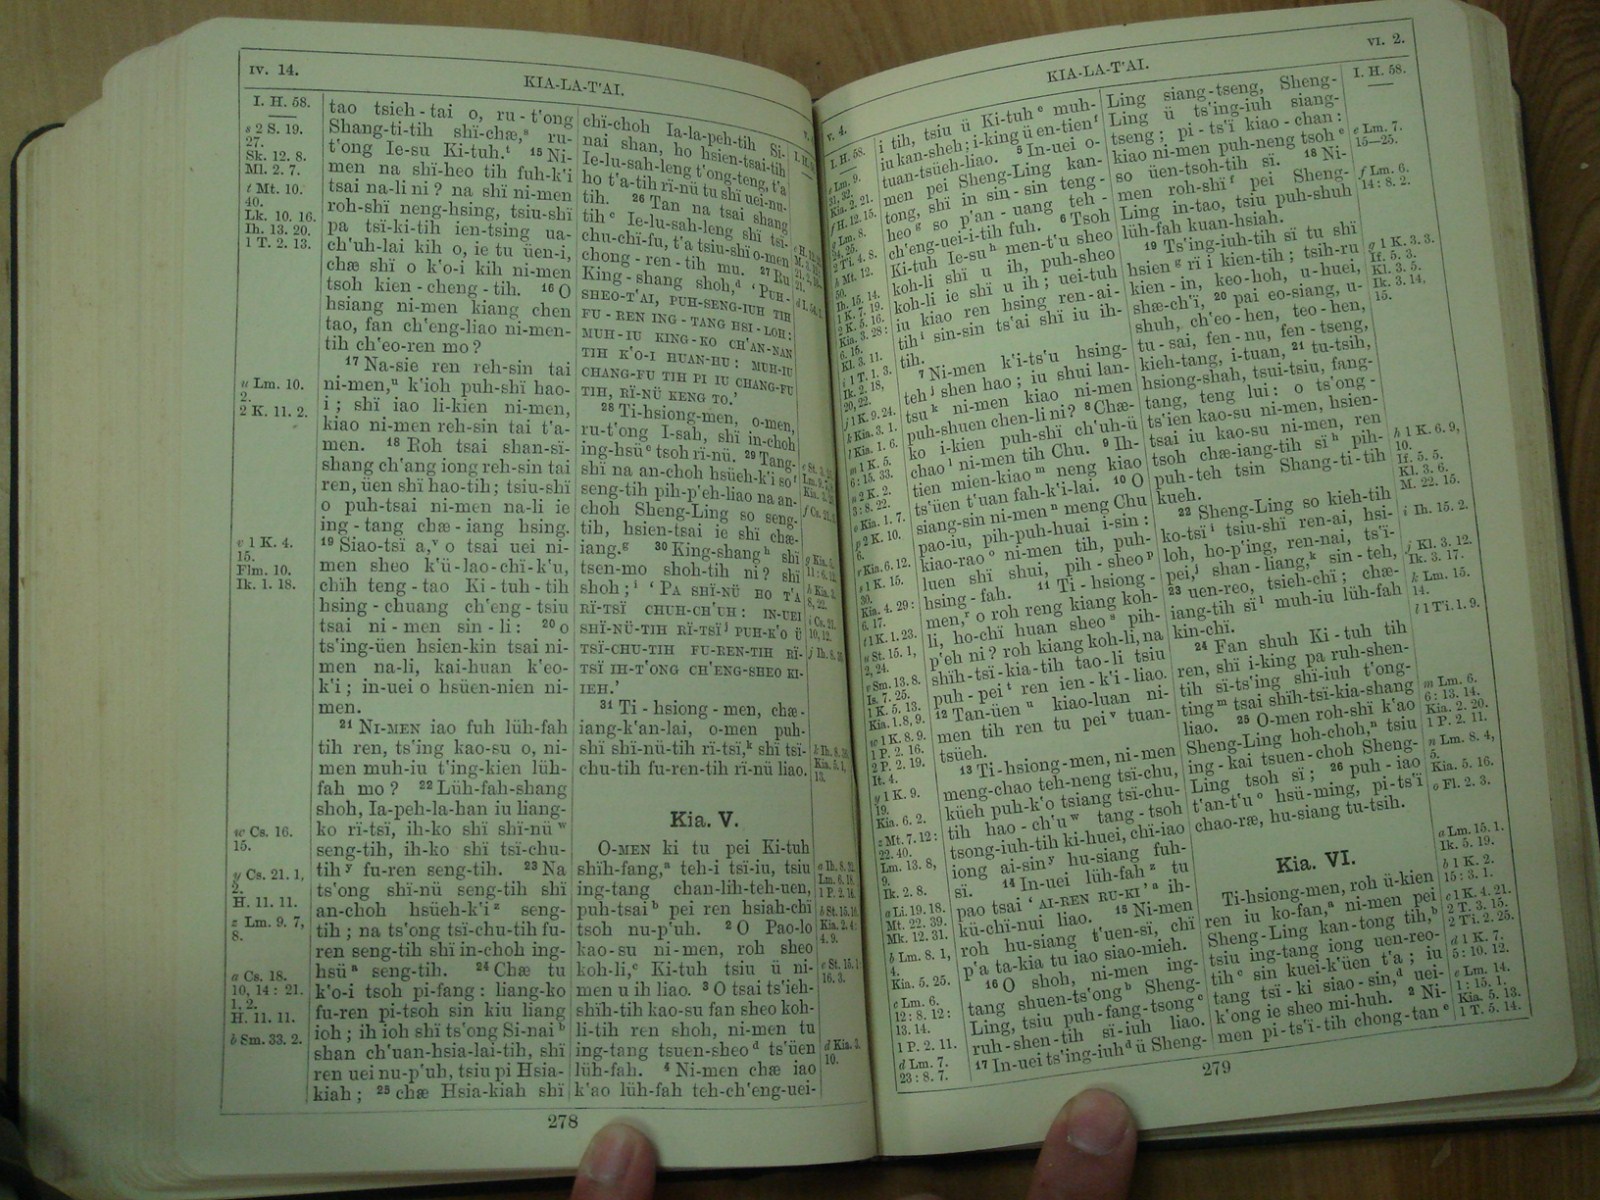 IV. 14.
KIA-LA-T'AI.
I. H. 58.
s 2 S. 19.
27.
Sk. 12. 8.
Ml. 2. 7.
t Mt. 10.
40.
Lk. 10. 16.
Ih. 13. 20.
1 T. 2. 13.
u Lm. 10.
2.
2 K. 11. 2.
v 1 K. 4.
15.
Flm. 10.
Ik. 1. 18.
w Cs. 16.
15.
y Cs. 21. 1,
2.
H. 11. 11.
z Lm. 9. 7,
8.
a Cs. 18.
10, 14 : 21.
1, 2.
H. 11. 11.
b Sm. 33. 2.
tao tsieh-tai o, ru-t'ong
Shang-ti-tih shï-chæ,s ru-
t'ong Ie-su Ki-tuh.t 15 Ni-
men na shï-heo tih fuh-k'i
tsai na-li ni? na shï ni-men
roh-shï neng-hsing, tsiu-shï
pa tsï-ki-tih ien-tsing ua-
ch'uh-lai kih o, ie tu üen-i,
chæ shï o k'o-i kih ni-men
tsoh kien-cheng-tih. 16 O
hsiang ni-men kiang chen
tao, fan ch'eng-liao ni-men-
tih ch'eo-ren mo?
17 Na-sie ren reh-sin tai
ni-men,u k'ioh puh-shï hao-
i; shï iao li-kien ni-men,
kiao ni-men reh-sin tai t'a-
men. 18 Roh tsai shan-sï-
shang ch'ang iong reh-sin tai
ren, üen shï hao-tih; tsiu-shï
o puh-tsai ni-men na-li ie
ing-tang chæ-iang hsing.
19 Siao-tsï a,v o tsai uei ni-
men sheo k'ü-lao-chï-k'u,
chïh teng-tao Ki-tuh-tih
hsing-chuang ch'eng-tsiu
tsai ni-men sin-li: 20 o
ts'ing-üen hsien-kin tsai ni-
men na-li, kai-huan k'eo-
k'i; in-uei o hsüen-nien ni-
men.
21 NI-MEN iao fuh lüh-fah
tih ren, ts'ing kao-su o, ni-
men muh-iu t'ing-kien lüh-
fah mo? 22 Lüh-fah-shang
shoh, Ia-peh-la-han iu liang-
ko rï-tsï, ih-ko shï shï-nü w
seng-tih, ih-ko shï tsï-chu-
tih y fu-ren seng-tih. 23 Na
ts'ong shï-nü seng-tih shï
an-choh hsüeh-k'i z seng-
tih; na ts'ong tsï-chu-tih fu-
ren seng-tih shï in-choh ing-
hsü a seng-tih. 24 Chæ tu
k'o-i tsoh pi-fang: liang-ko
fu-ren pi-tsoh sin kiu liang
ioh; ih ioh shï ts'ong Si-nai b
shan ch'uan-hsia-lai-tih, shï
ren uei nu-p'uh, tsiu pi Hsia-
kiah; 25 chæ Hsia-kiah shï
chï-choh Ia-la-peh-tih Si-
nai shan, ho hsien-tsai-tih
Ie-lu-sah-leng t'ong-teng, t'a
ho t'a-tih rï-nü tu shï uei-nu-
tih. 26 Tan na tsai shang
tih c Ie-lu-sah-leng shï tsï-
chu-chï-fu, t'a tsiu-shï o-men
chong-ren-tih mu. 27 Ru
King-shang shoh,d 'PUH-
SHEO-T'AI, PUH-SENG-IUH TIH
FU-REN ING-TANG HSI-LOH:
MUH-IU KING-KO CH'AN-NAN
TIH K'O-I HUAN-HU: MUH-IU
CHANG-FU TIH PI IU CHANG-FU
TIH, RÏ-NÜ KENG TO.'
28 Ti-hsiong-men, o-men,
ru-t'ong I-sah, shï in-choh
ing-hsü e tsoh rï-nü. 29 Tang-
shï na an-choh hsüeh-k'i so f
seng-tih pih-p'eh-liao na an-
choh Sheng-Ling so seng-
tih, hsien-tsai ie shï chæ-
iang.g 30 King-shang h shï
tsen-mo shoh-tih ni? shï
shoh; i 'PA SHÏ-NÜ HO T'A
RÏ-TSÏ CHUH-CH'UH: IN-UEI
SHÏ-NÜ-TIH RÏ-TSÏ j PUH-K'O Ü
TSÏ-CHU-TIH FU-REN-TIH RÏ-
TSÏ IH-T'ONG CH'ENG-SHEO KI-
IEH.'
31 Ti-hsiong-men, chæ-
iang-k'an-lai, o-men puh-
shï shï-nü-tih rï-tsï,k shï tsï-
chu-tih fu-ren-tih rï-nü liao.
Kia. V.
O-MEN ki tu pei Ki-tuh
shïh-fang,a teh-i tsï-iu, tsiu
ing-tang chan-lih-teh-uen,
puh-tsai b pei ren hsiah-chï
tsoh nu-p'uh. 2 O Pao-lo
kao-su ni-men, roh sheo
koh-li,c Ki-tuh tsiu ü ni-
men u ih liao. 3 O tsai ts'ieh-
shïh-tih kao-su fan sheo koh-
li-tih ren shoh, ni-men tu
ing-tang tsuen-sheo d ts'üen
lüh-fah. 4 Ni-men chæ iao
k'ao lüh-fah teh-ch'eng-uei-
d Kia. 3.
10.
278
V. 4.
KIA-LA-T'AI.
VI. 2.
I. H. 58.
e Lm. 9.
31, 32.
Kia. 2. 21.
f H. 12. 15.
g Lm. 8.
24, 25.
2 Ti. 4. 8.
h Mt. 12.
50.
Ih. 15. 14.
1 K. 7. 19.
2 K. 5. 16.
Kia. 3. 28:
6. 15.
Kl. 3. 11.
i 1 T. 1. 3.
Ik. 2. 18,
20, 22.
j 1 K. 9. 24.
k Kia. 3. 1.
l Kia. 1. 6.
m 1 K. 5.
6: 15. 33.
n 2 K. 2.
3: 8. 22.
o Kia. 1. 7.
p 2 K. 10.
6.
r Kia. 6. 12.
s 1 K. 15.
30.
Kia. 4. 29:
6. 17.
t 1 K. 1. 23.
u St. 15. 1,
2, 24.
v Sm. 13. 8.
Is. 7. 25.
1 K. 5. 13.
Kia. 1. 8, 9.
w 1 K. 8. 9.
1 P. 2. 16.
2 P. 2. 19.
It. 4.
y 1 K. 9.
19.
Kia. 6. 2.
z Mt. 7. 12:
22. 40.
Lm. 13. 8,
9.
Ik. 2. 8.
a Li. 19. 18.
Mt. 22. 39.
Mk. 12. 31.
b Lm. 8. 1,
4.
Kia. 5. 25.
c Lm. 6.
12: 8. 12:
13. 14.
1 P. 2. 11.
d Lm. 7.
23: 8. 7.
i tih, tsiu ü Ki-tuh e muh-
iu kan-sheh; i-king ü en-tien f
tuan-tsüeh-liao. 5 In-uei o-
men pei Sheng-Ling kan-
tong, shï in sin-sin teng-
heo g so p'an-uang teh-
ch'eng-uei-i-tih fuh. 6 Tsoh
Ki-tuh Iesu h men-t'u sheo
koh-li shï u ih, puh-sheo
koh-li ie shï u ih; uei-tuh
iu kiao ren hsing ren-ai-
tih i sin-sin ts'ai shï iu ih-
tih.
7 Ni-men k'i-ts'u hsing-
teh j shen hao; iu shui lan-
tsu k ni-men kiao ni-men
puh-shuen chen-li ni? 8 Chæ-
ko i-kien puh-shï ch'uh-ü
chao l ni-men tih Chu. 9 Ih-
tien mien-kiao m neng kiao
ts'üen t'uan fah-k'i-lai. 10 O
siang-sin ni-men n meng Chu
pao-iu, pih-puh-huai i-sin:
kiao-rao o ni-men tih, puh-
luen shï shui, pih-sheo p
hsing-fah. 11 Ti-hsiong-
men,r o roh reng kiang koh-
li, ho-chï huan sheo s pih-
p'eh ni? roh kiang koh-li, na
shïh-tsï-kia-tih tao-li tsiu
puh-pei t ren ien-k'i-liao.
12 Tan-üen u kiao-luan ni-
men tih ren tu pei v tuan-
tsüeh.
13 Ti-hsiong-men, ni-men
meng-chao teh-neng tsï-chu,
küeh puh-k'o tsiang tsï-chu-
tih hao-ch'u w tang-tsoh
tsong-iuh-tih ki-huei, chï-iao
iong ai-sin y hu-siang fuh-
sï. 14 In-uei lüh-fah z tu
pao tsai 'AI-REN RU-KI' a ih-
kü-chï-nui liao. 15 Ni-men
roh hu-siang t'uen-sï, chï
p'a ta-kia tu iao siao-mieh.
16 O shoh, ni-men ing-
tang shuen-ts'ong b Sheng-
Ling, tsiu puh-fang-tsong c
ruh-shen-tih sï-iuh liao.
17 In-uei ts'ing-iuh d ü Sheng-
Ling siang-tseng, Sheng-
Ling ü ts'ing-iuh siang-
tseng; pi-ts'ï kiao-chan:
kiao ni-men puh-neng tsoh e
so üen-tsoh-tih sï. 18 Ni-
men roh-shï f pei Sheng-
Ling in-tao, tsiu puh-shuh
lüh-fah kuan-hsiah.
19 Ts'ing-iuh-tih sï tu shï
hsien g rï i kien-tih; tsih-ru
kien-in, keo-hoh, u-huei,
shæ-ch'ï, 20 pai eo-siang, u-
shuh, ch'eo-hen, teo-hen,
tu-sai, fen-nu, fen-tseng,
kieh-tang, i-tuan, 21 tu-tsih,
hsiong-shah, tsui-tsiu, fang-
tang, teng lui: o ts'ong-
ts'ien kao-su ni-men, hsien-
tsai iu kao-su ni-men, ren
tsoh chæ-iang-tih sï h pih-
puh-teh tsin Shang-ti-tih
kueh.
22 Sheng-Ling so kieh-tih
ko-tsï i tsiu-shï ren-ai, hsi-
loh, ho-p'ing, ren-nai, ts'ï-
pei,j shan-liang,k sin-teh,
23 uen-reo, tsieh-chï; chæ-
iang-tih sï l muh-iu lüh-fah
kin-chï.
24 Fan shuh Ki-tuh tih
ren, shï i-king pa ruh-shen-
tih sï-ts'ing shï-iuh t'ong-
ting m tsai shïh-tsï-kia-shang
liao. 25 O-men roh-shï k'ao
Sheng-Ling hoh-choh,n tsiu
ing-kai tsuen-choh Sheng-
Ling tsoh sï; 26 puh-iao
t'an-t'u o hsü-ming, pi-ts'ï
chao-ræ, hu-siang tu-tsih.
Kia. VI.
Ti-hsiong-men, roh ü-kien
ren iu ko-fan,a ni-men pei
Sheng-Ling kan-tong tih,b
tsiu ing-tang iong uen-reo-
tih c sin kuei-k'üen t'a; iu
tang tsï-ki siao-sin,d uei-
k'ong ie sheo mi-huh. 2 Ni-
men pi-ts'ï-tih chong-tan e
I. H. 58.
e Lm. 7.
15—25.
f Lm. 6.
14: 8. 2.
g 1 K. 3. 3.
If. 5. 3.
Kl. 3. 5.
Ik. 3. 14,
15.
h 1 K. 6. 9,
10.
If. 5. 5.
Kl. 3. 6.
M. 22. 15.
i Ih. 15. 2.
j Kl. 3. 12.
Ik. 3. 17.
k Lm. 15.
14.
l 1 Ti. 1. 9.
m Lm. 6.
6: 13. 14.
Kia. 2. 20.
1 P. 2. 11.
n Lm. 8. 4,
5.
Kia. 5. 16.
o Fl. 2. 3.
a Lm. 15. 1.
Ik. 5. 19.
b 1 K. 2.
15: 3. 1.
c 1 K. 4. 21.
2 T. 3. 15.
2 Ti. 2. 25.
d 1 K. 7.
5: 10. 12.
e Lm. 14.
1: 15. 1.
Kia. 5. 13.
1 T. 5. 14.
279